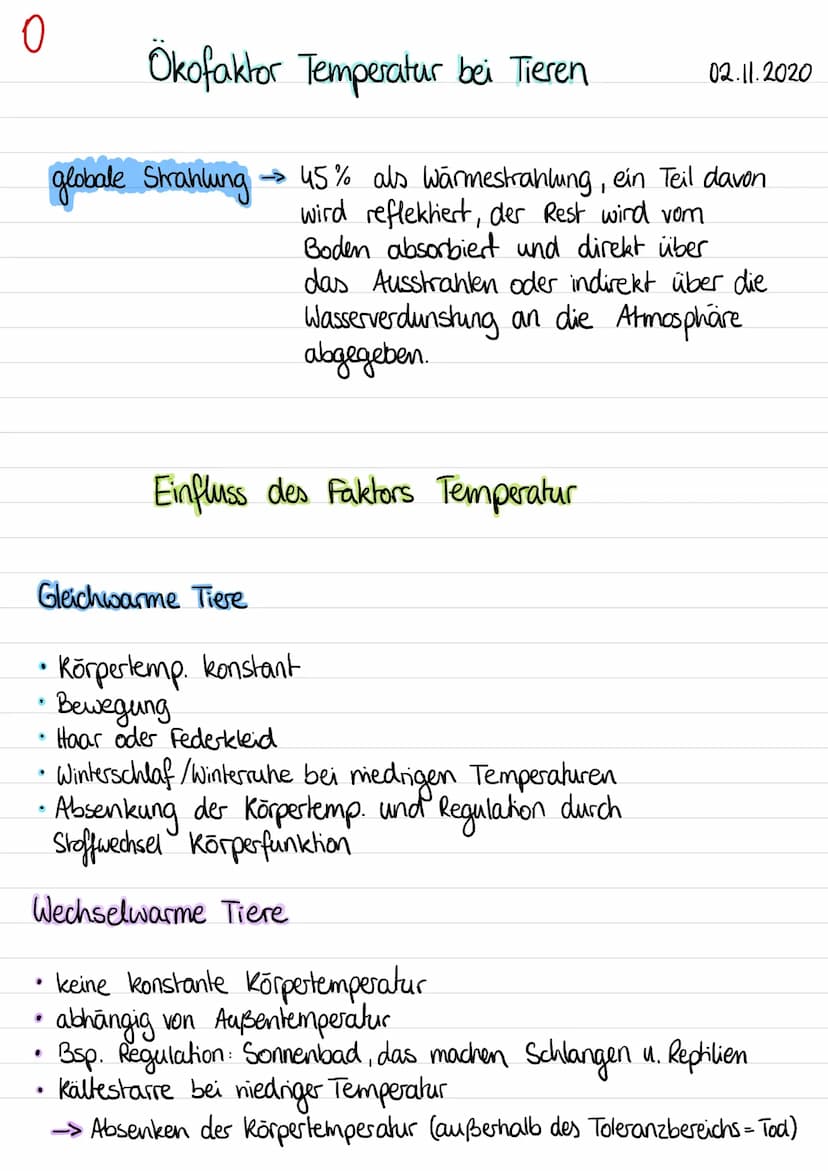 0
Ökofaktor Temperatur bei Tieren 02.11.2020
globale Strahlung → 45% als Wärmestrahlung, ein Teil davon
wird reflektiert, der Rest wird vom
Boden absorbiert und direkt über
das Ausstrahlen oder indirekt über die
Wasserverdunstung an die Atmosphäre
abgegeben.
Einfluss des Faktors Temperatur
Gleichwarme Tiere
• Körpertemp. konstant
• Bewegung
• Haar oder Federkleid
• Winterschlaf/Winterruhe bei niedrigen Temperaturen
• Absenkung der Körpertemp. und Regulation durch
Stoffwechsel Körperfunktion
Wechselwarme Tiere
• keine konstante Körpertemperatur
• abhängig von Außentemperatur
• Bsp. Regulation: Sonnenbad, das machen Schlangen u. Reptilien
• Kältestarre bei niedriger Temperatur
→ Absenken der Körpertemperatur (außerhalb des Toleranzbereichs = Tod)